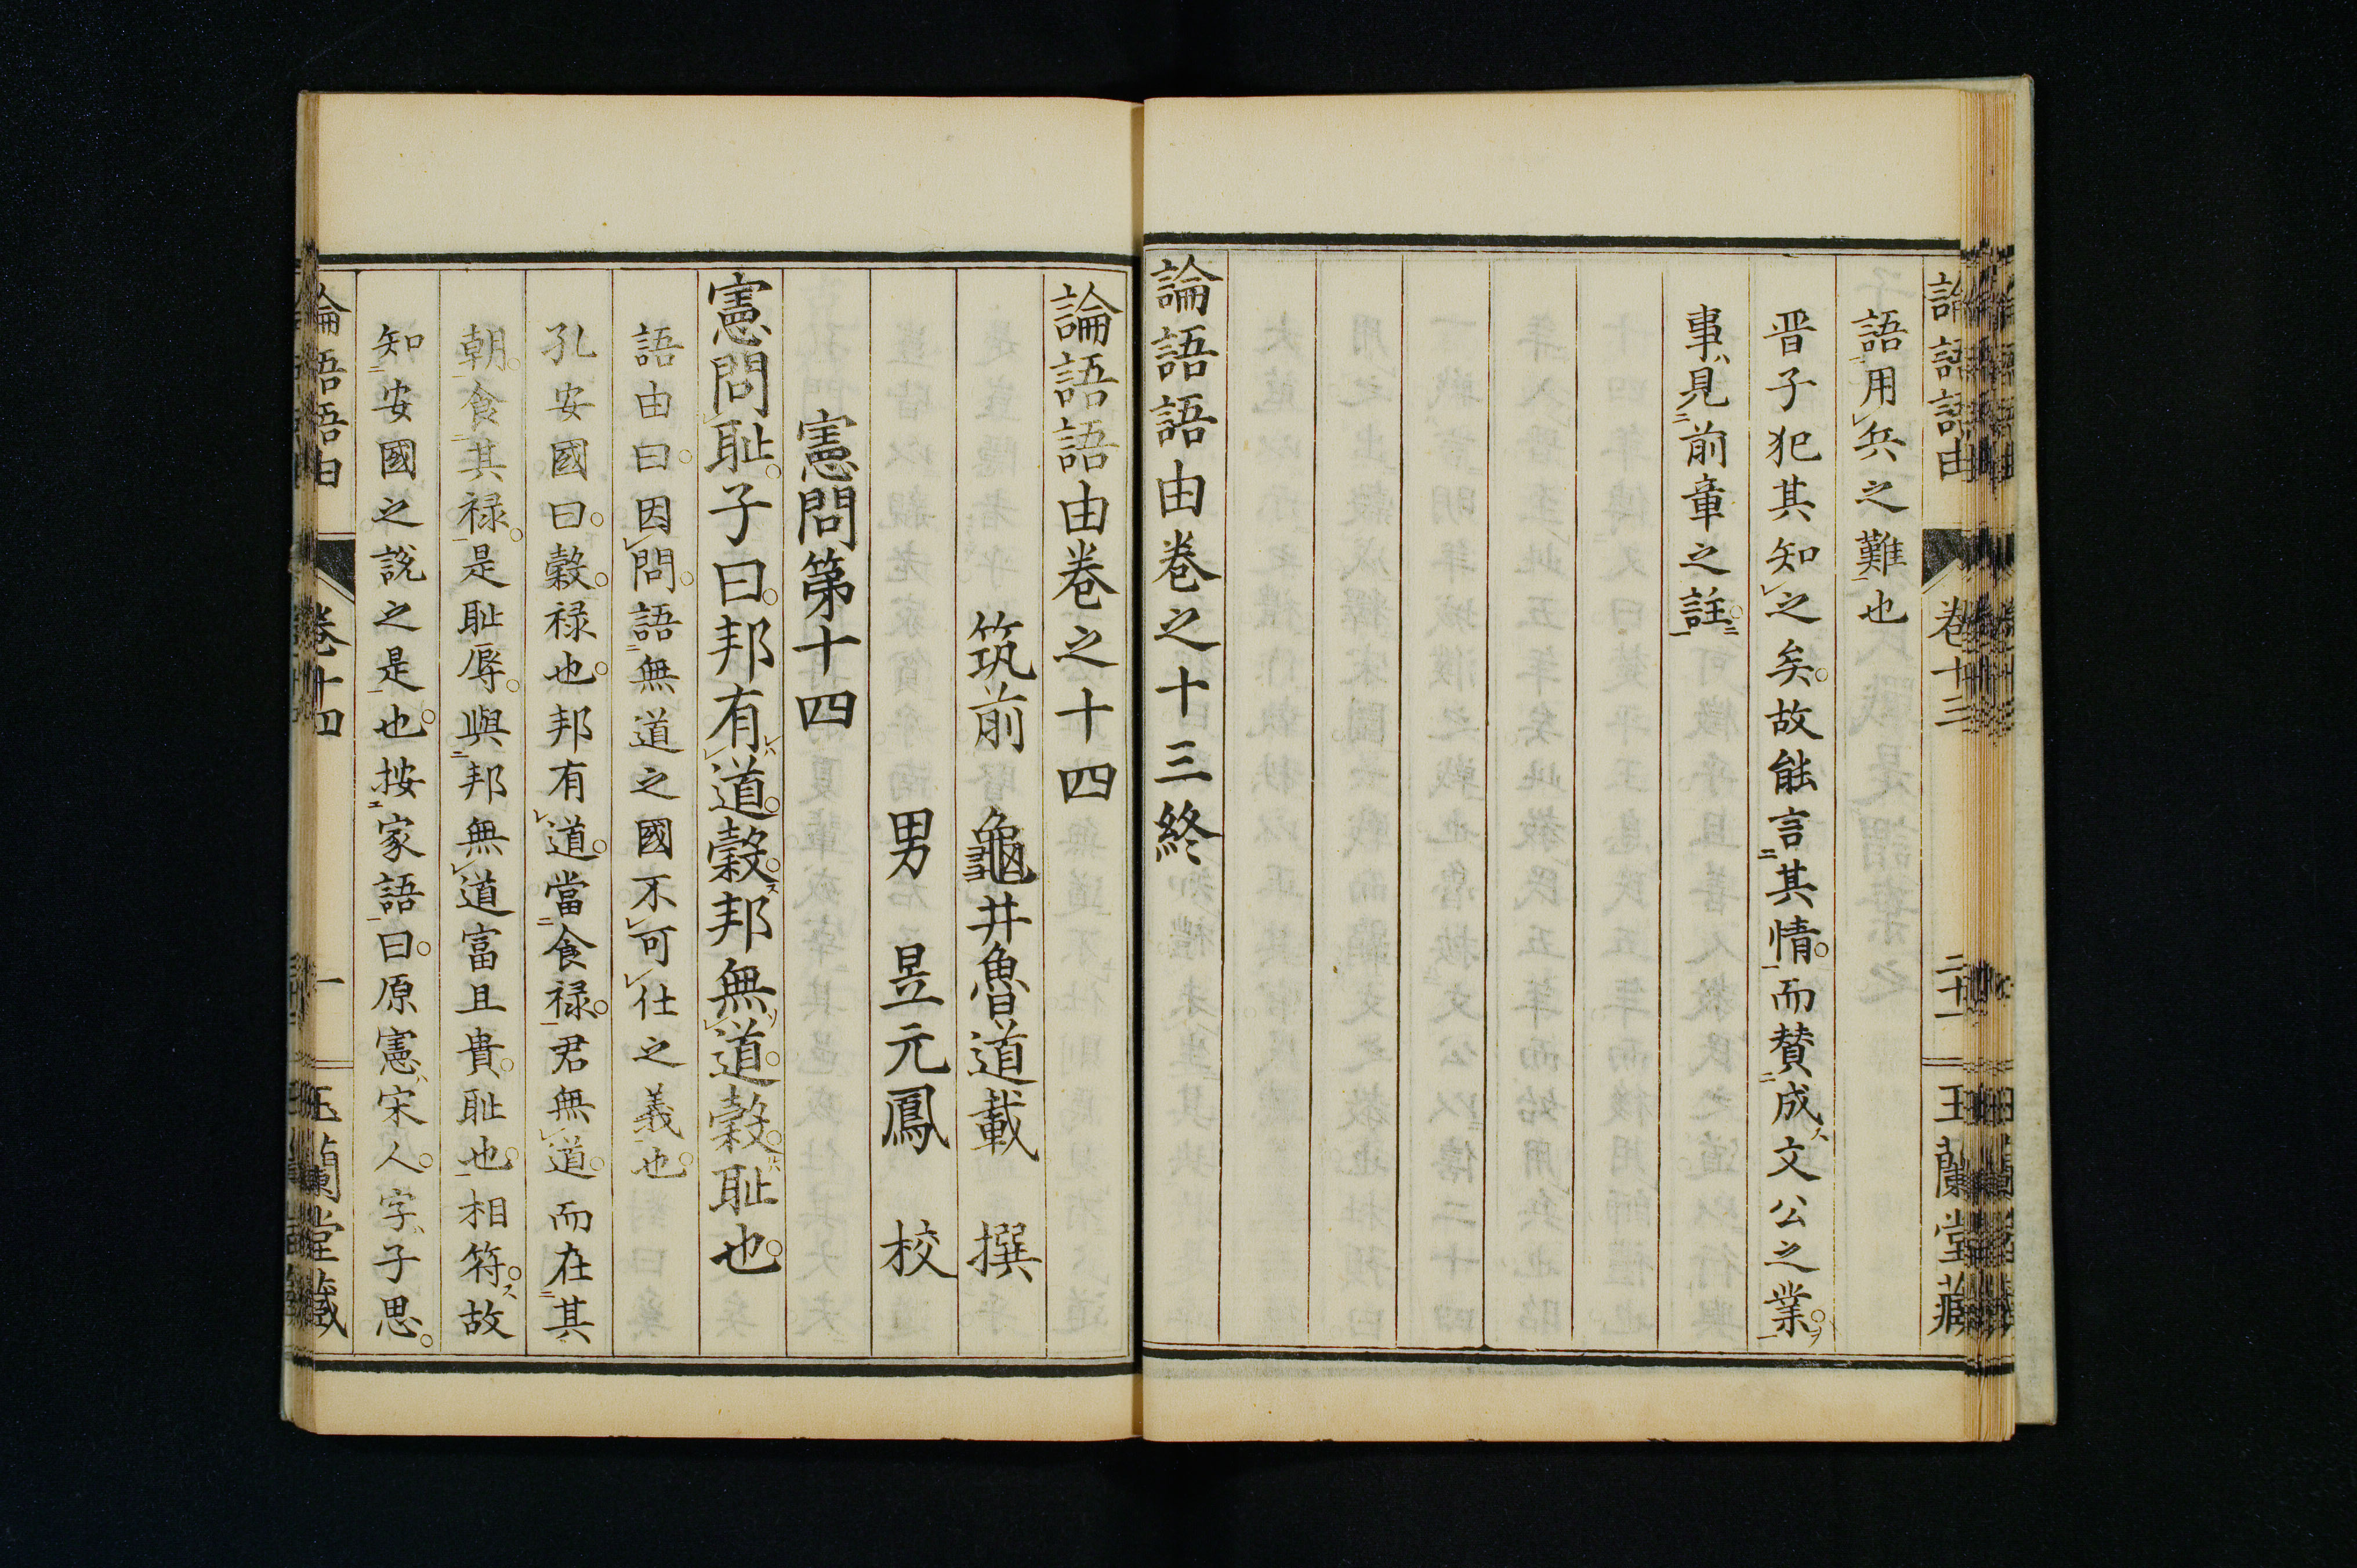 語用兵之難也
晋子犯其知之矣故能言其情而賛成文公之業
事見前章之註
論語語由卷之十三終
論語語由卷之十四
筑前 龜井魯道載 撰
男 昱元鳳 校
憲問第十四
憲問耻子曰邦有道穀邦無道穀耻也
語由曰因問語無道之國不可仕之義也
孔安國曰穀禄也邦有道當食禄君無道而在其
朝食其禄是耻辱與邦無道富且貴耻也相符故
知安國之說之是也按家語曰原憲宋人字子思
論語語由 卷十四 一 玉蘭堂藏